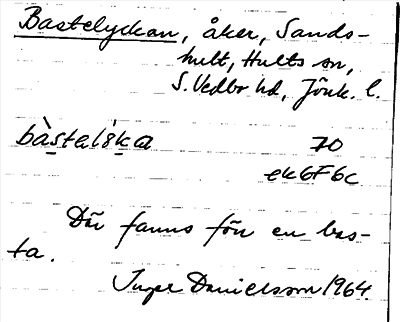 Bastelyckan, åker, Sands-
hult, Hults sn,
S. Vedbo hd, Jönk. l.
bàstelık̬a 70
ek6F6c
Där fanns förr en bas-
ta.
Inger Danielsson 1964.